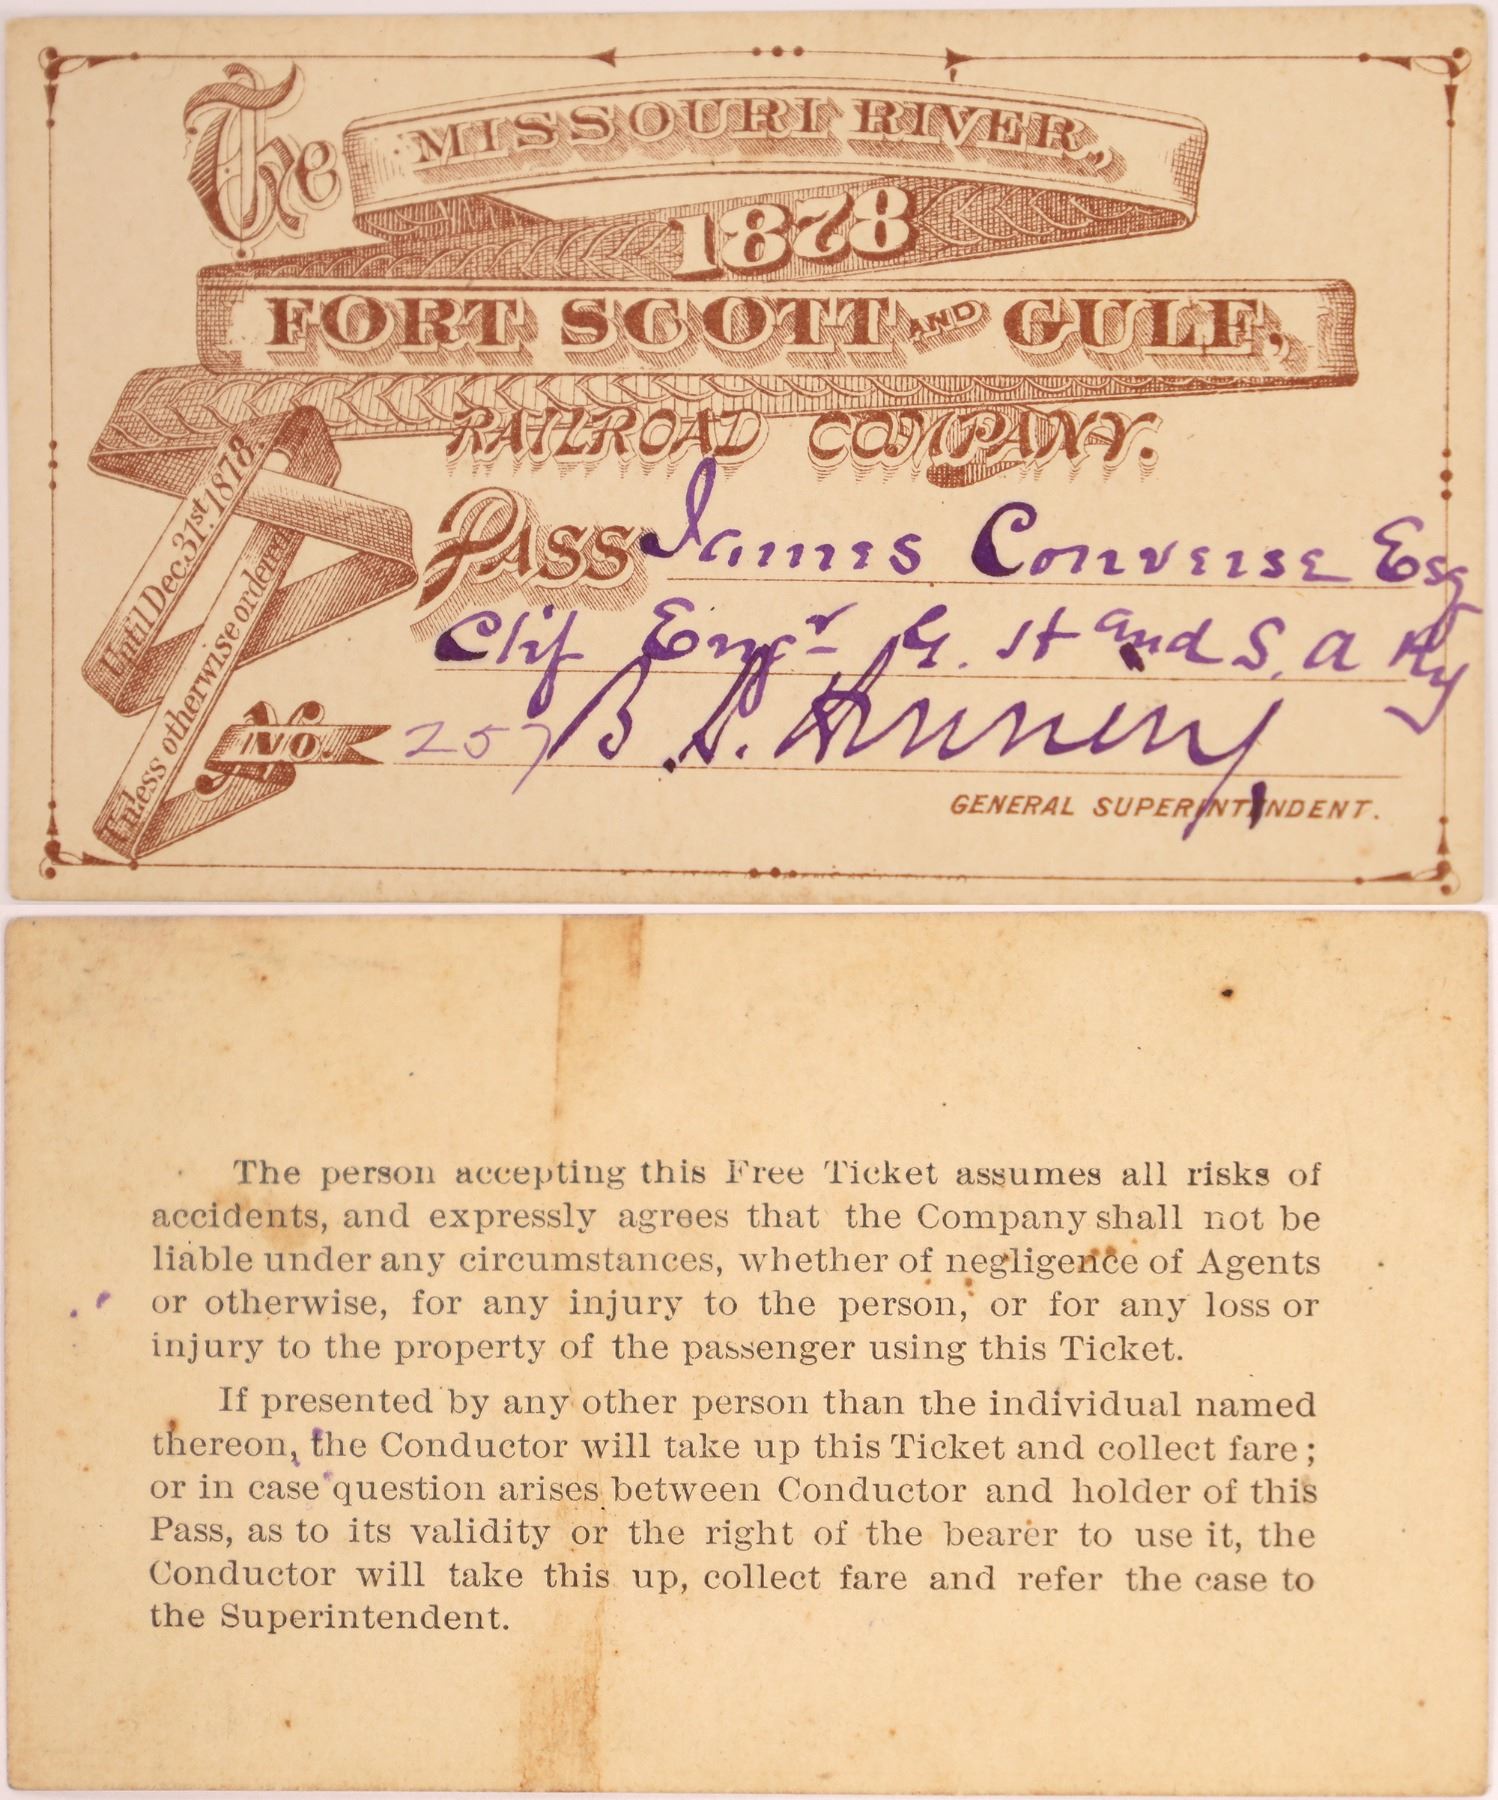 The MISSOURI RIVER,
1878
FORT SCOTT AND GULF,
RAILROAD COMPANY.
Until Dec. 31st. 1878.
Unless otherwise ordered
PASS James Converse Esq
Chf Engr G. H and S. A Ry
No. 257 B. S. Henning
GENERAL SUPERINTENDENT.
The person accepting this Free Ticket assumes all risks of
accidents, and expressly agrees that the Company shall not be
liable under any circumstances, whether of negligence of Agents
or otherwise, for any injury to the person, or for any loss or
injury to the property of the passenger using this Ticket.
If presented by any other person than the individual named
thereon, the Conductor will take up this Ticket and collect fare;
or in case question arises between Conductor and holder of this
Pass, as to its validity or the right of the bearer to use it, the
Conductor will take this up, collect fare and refer the case to
the Superintendent.